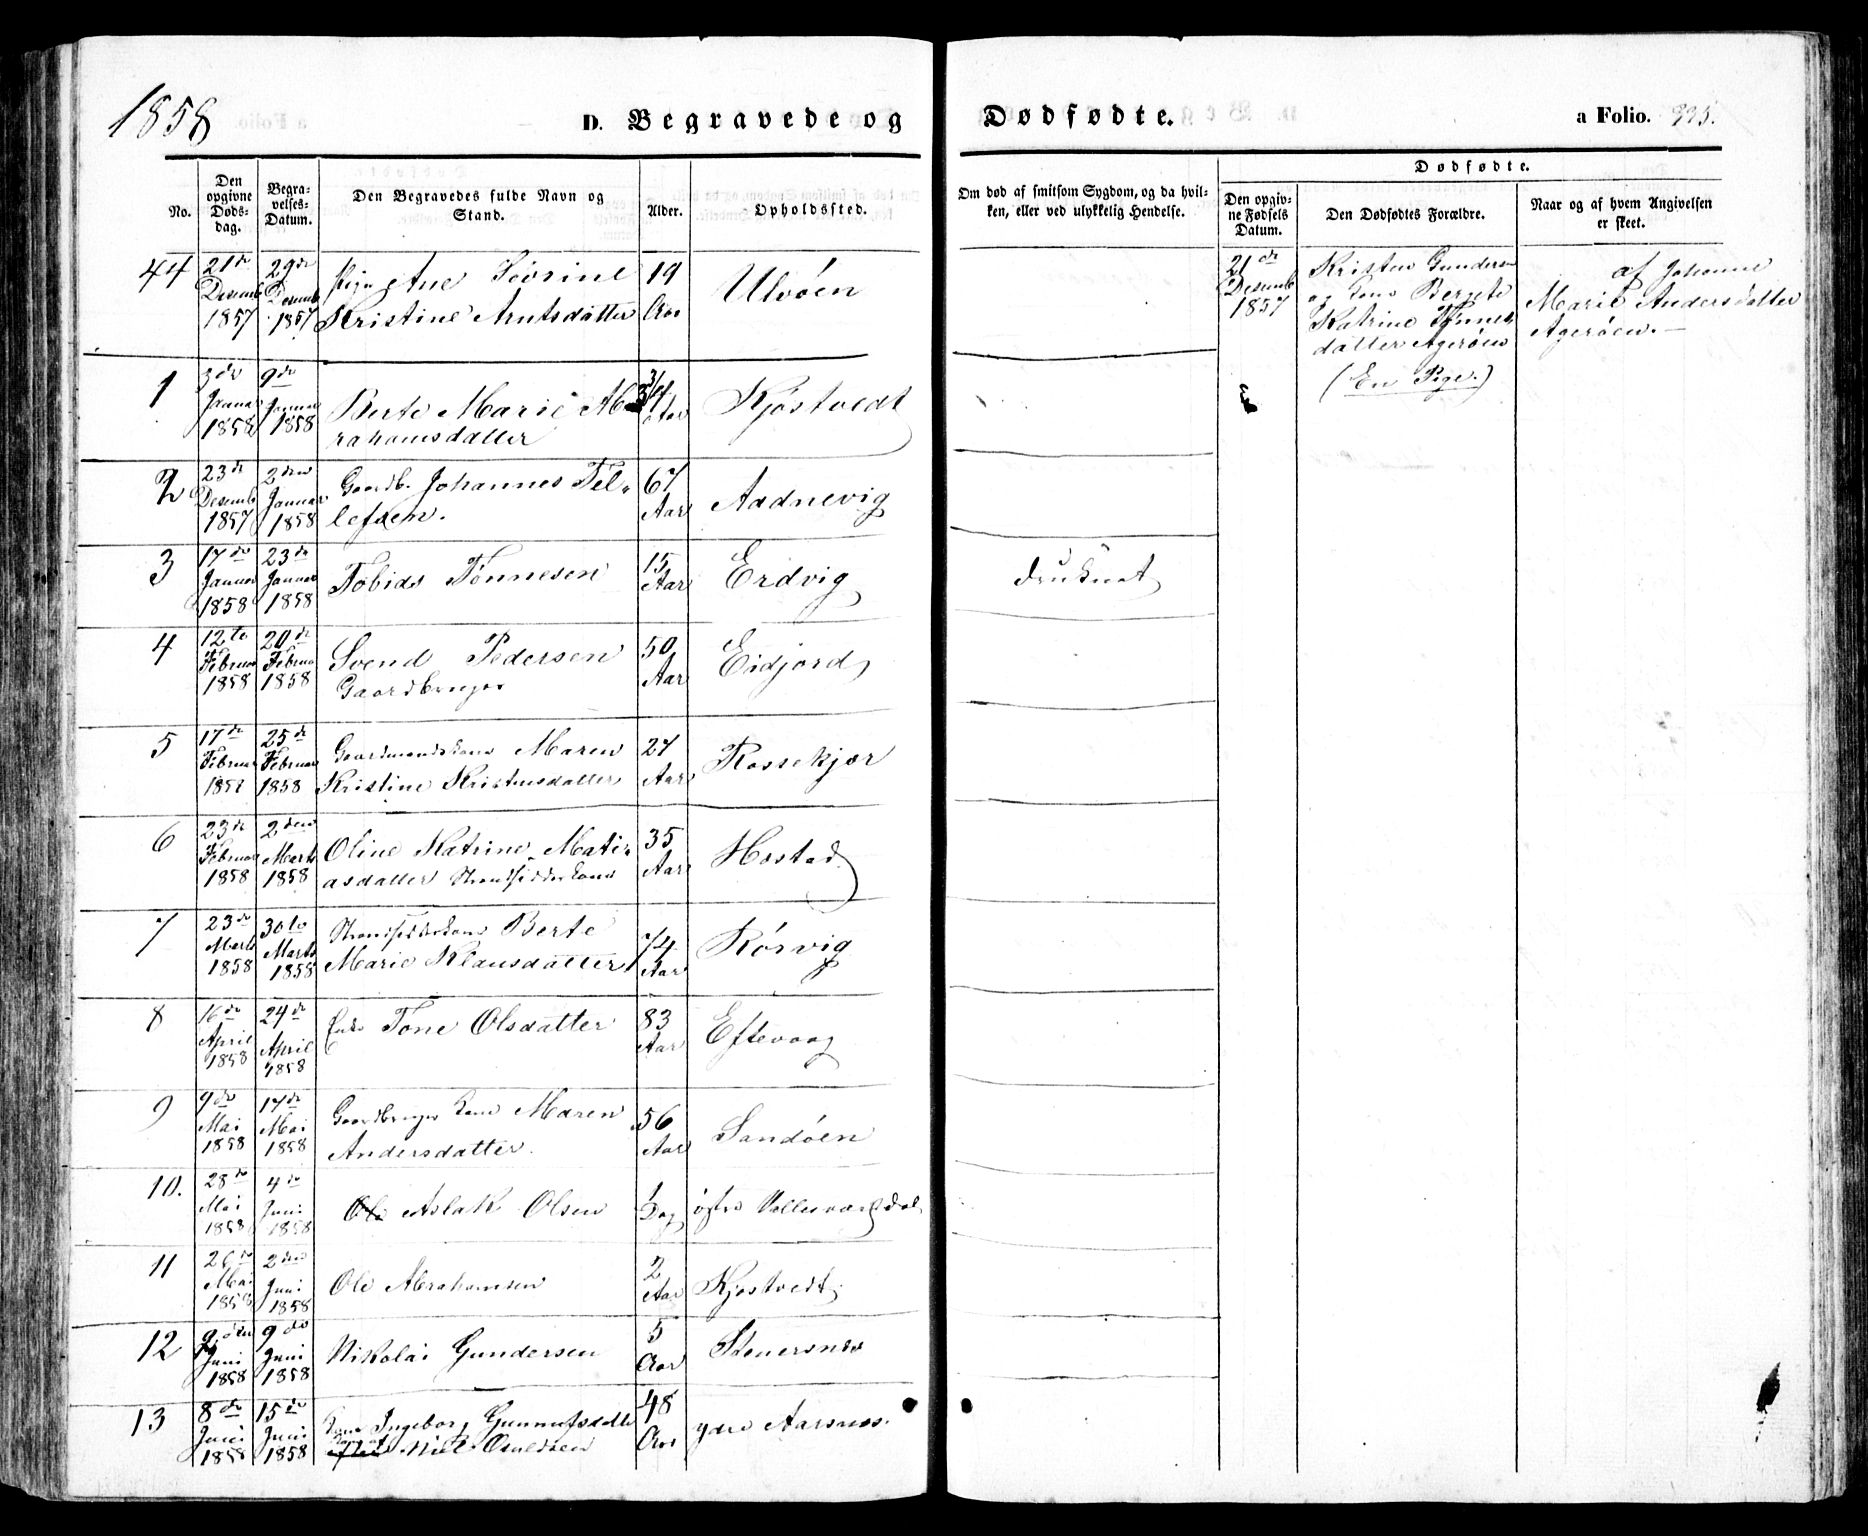 1858
D. Begravede og Dødfødte.
a Folio. 335.
No.
Den opgivne Døds-dag.
Begra-velses-Datum.
Den Begravedes fulde Navn og Stand.
Alder.
Opholdssted.
Om død af smitsom Sygdom, og da hvil-ken, eller ved ulykkelig Hendelse.
Dødfødte.
Den opgiv-ne Fødsels Datum.
Den Dødfødtes Forældre.
Naar og af hvem Angivelsen er skeet.
44 21de Desemb 1857 29de Desemb 1857 Pige Ane Severine
Kristine Arntsdatter 19 Aar Ulvøen
21de Desemb 1857
Kristen Gunders
og Kone Bergete
Katrine Tønnes
datter Agerøen
(En Pige.)
af Johanne
Marie Andersdatter
Agerøen.
1 3de Januar 1858 9de Januar 1858 Berte Marie Ab
rahamsdatter 3/4 Aar Kjøstvedt
2 23de Desemb 1857 2den Januar 1858 Gaardb. Johannes Tel-
lefsen. 67 Aar Aadnevig
3 17de Januar 1858 23de Januar 1858 Tobias Tønnesen 15 Aar Erdvig druknet
4 12te Februar 1858 20de Februar 1858 Svend Pedersen
Gaardbruger 50 Aar Eidjord
5 17de Februar 1858 25de Februar 1858 Gaardmandskone Maren
Kristine Kristensdatter 27 Aar Rossekjær
6 23de Februar 1858 2den Marts 1858 Oline Katrine Mati-
asdatter Strandsidderkone 35 Aar Høstad
7 23de Marts 1858 30te Marts 1858 Strandsidderkone Berte
Marie Klausdatter 74 Aar Rørvig
8 16de April 1858 24de April 1858 Enke Tone Olsdatter 83 Aar Eftevaag
9 9de Mai 1858 17de Mai 1858 Gaardbruger Kone Maren
Andersdatter. 56 Aar Sandøen
10. 28de Mai 1858 4de Juni 1858 Ole Aslak Olsen 1 Dag østre Vallesværdsdal
11 26de Mai 1858 2den Juni 1858 Ole Abrahamsen 2 Aar Kjøstvedt
12 9den Juni 1858 9de Juni 1858 Nikolai Gundersen 5 Aar Stenersnes
13 8de Juni 1858 15de Juni 1858 Kone Ingeborg Gunnufsdatter
Niels Osuldsen 48 Aar ydre Aarsnes.